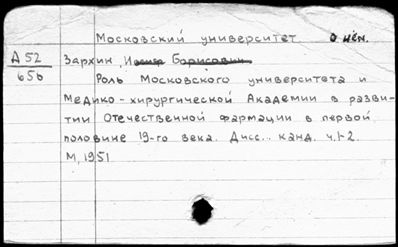 Московский университет о нём.
А 52 Зархин Борисович
656 Роль Московского университета и
Медико-хирургической Академии в разви-
тии Отечественной фармации в первой
половине 19-го века. Дисс... канд. ч.1-2.
М, 1951